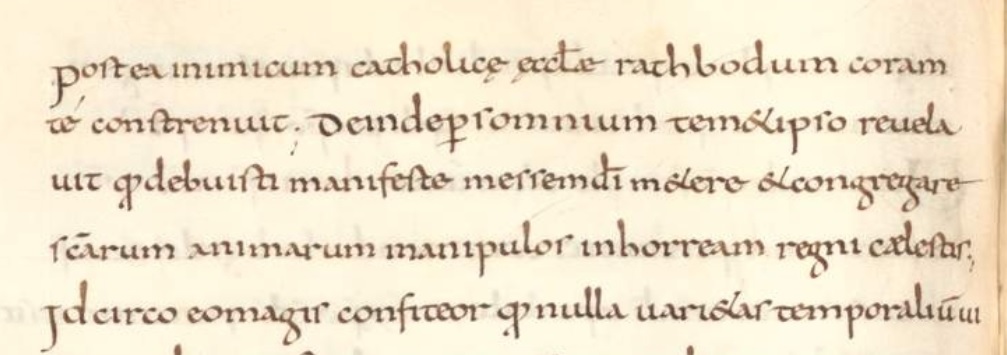 postea inimicum catholicę ęccl̄e rathbodum coram
té constrenuit; Deinde ꝑ somnium tem&ipso reuela
uit qđ debuisti manifeste messem dī m&ere &congregare
scārum animarum manipulos in horream regni cælestis;
Idcirco eo magis confiteor qđ nulla uari&as temporaliū ui